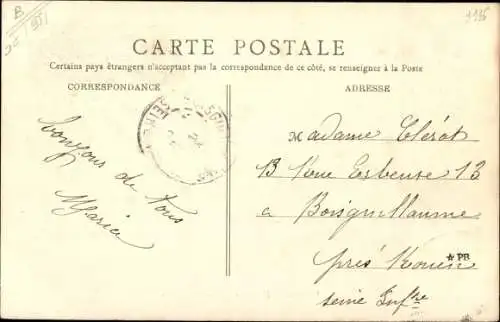 B
CARTE POSTALE
Certains pays étrangers n'acceptant pas la correspondance de ce côté, se renseigner à la Poste
CORRESPONDANCE
ADRESSE
bonjour de tous
Maria
Madame Clérot
13 Rue 13
a Boisguillaume
près Rouen
Seine Infre
★PB